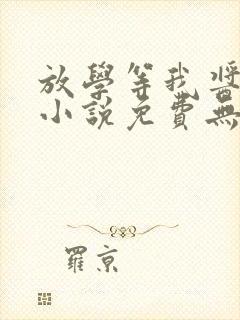 放學等我醬
小說免費無
羅京